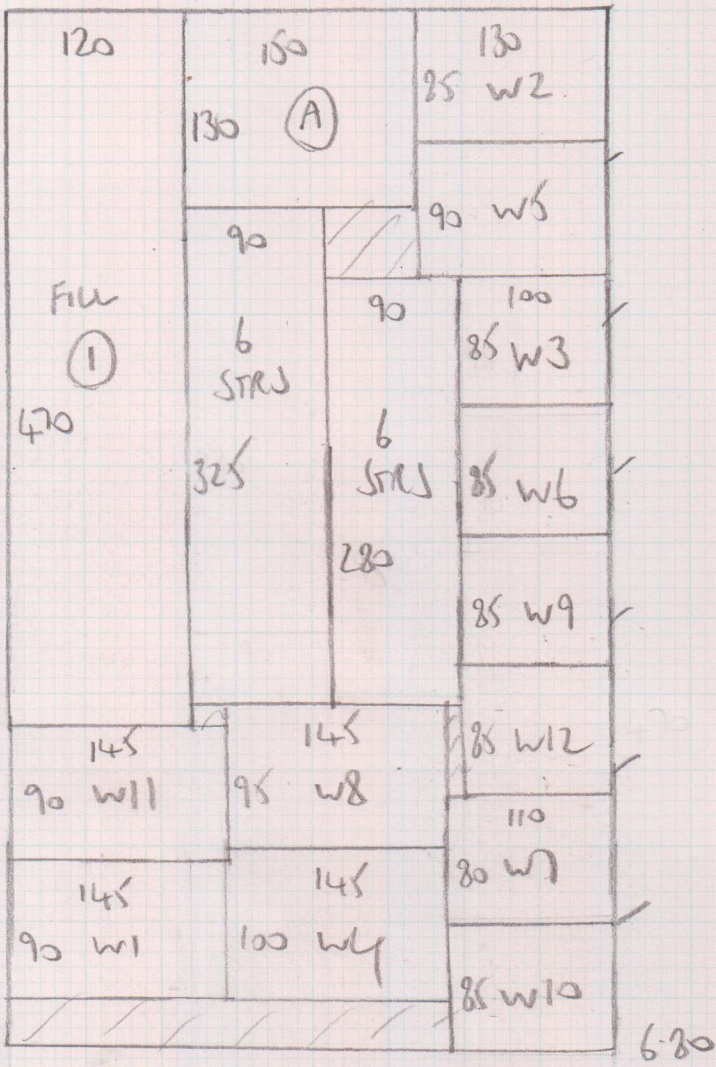 120
150
130
130
A
85 W2
90 W5
FILL
1
470
90
6
STRS
325
90
6
STRS
280
100
85 W3
85 W6
85 W9
85 W12
145
90 W11
145
95 W8
110
80 W7
145
90 W1
145
100 W4
85 W10
6.80